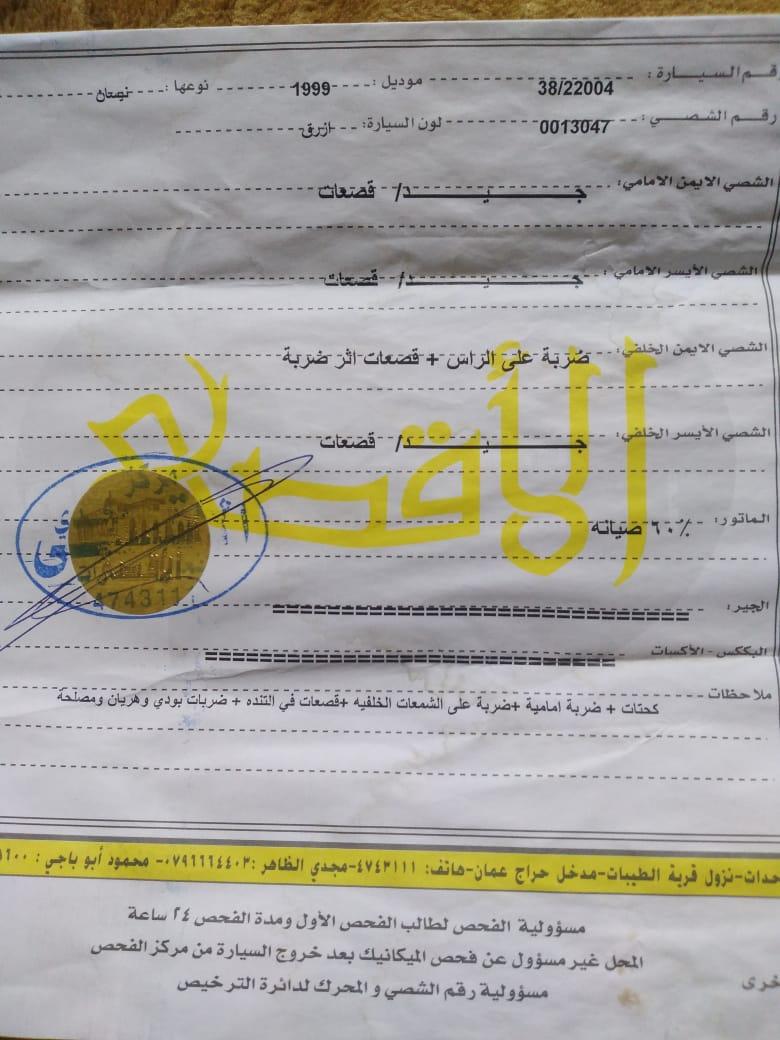 قم السيارة: 38/22004 موديل: 1999 نوعها: نيسان
رقم الشصي: 0013047 لون السيارة: ازرق
الشصي الايمن الامامي: جيد/ قصعات
الشصي الأيسر الامامي: جيد/ قصعات
الشصي الايمن الخلفي: ضربة على الراس + قصعات اثر ضربة
الشصي الأيسر الخلفي: جيد/ قصعات
الأقصى
الماتور: ٦٠٪ صيانه
مركز
4743111
الجير: ==============================
البككس - الأكسات ==============================
ملاحظات كحتات + ضربة امامية +ضربة على الشمعات الخلفيه +قصعات في التنده + ضربات بودي وهريان ومصلحة
حدات-نزول قرية الطيبات-مدخل حراج عمان-هاتف: ٤٧٤٣١١١-مجدي الظاهر :٠٧٩٦٦٦٤٤٠٣- محمود أبو باجي :
مسؤولية الفحص لطالب الفحص الأول ومدة الفحص ٢٤ ساعة
المحل غير مسؤول عن فحص الميكانيك بعد خروج السيارة من مركز الفحص
خرى
مسؤولية رقم الشصي و المحرك لدائرة الترخيص